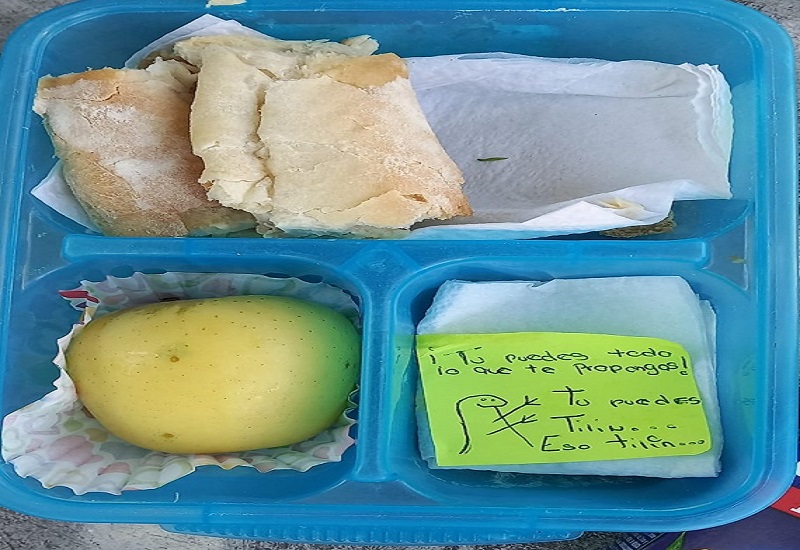 ¡Tú puedes todo
lo que te propongas!
Tu puedes
Tilin...
Eso tilin...